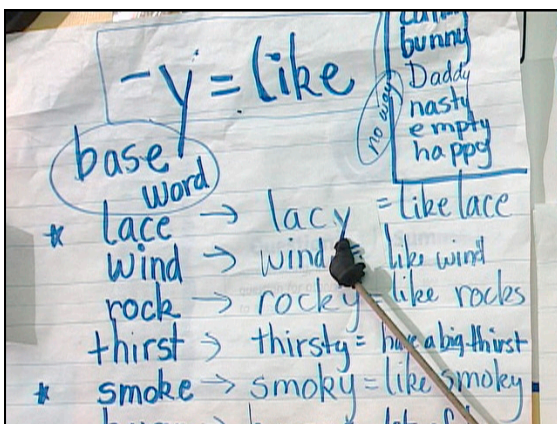 -y = like
bunny
Daddy
nasty
empty
happy
no way
base
word
* lace → lacy = like lace
wind → wind = like wind
rock → rocky = like rocks
thirst → thirsty = have a big thirst
* smoke → smoky = like smoky